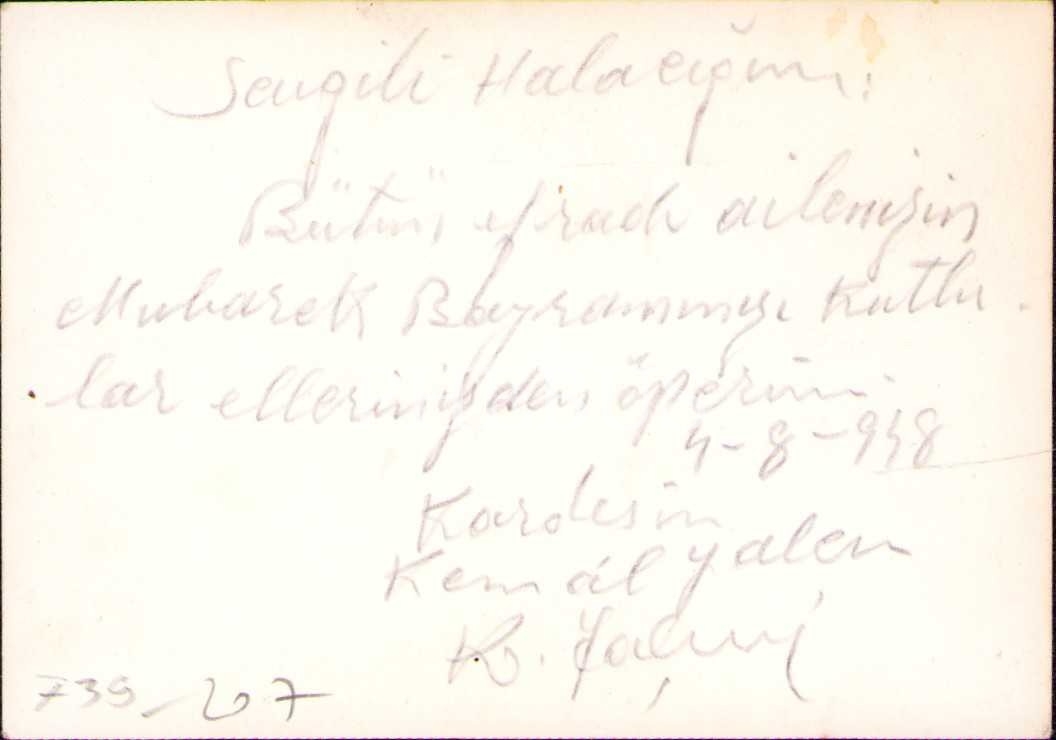 Sevgili Halacığım:
Bütün efradı ailenizin
Mubarek Bayramınızı Kutlu
lar ellerinizden öperim.
4-8-948
Kardesin
Kemâl Yalçın
K. Yalçın
739-207